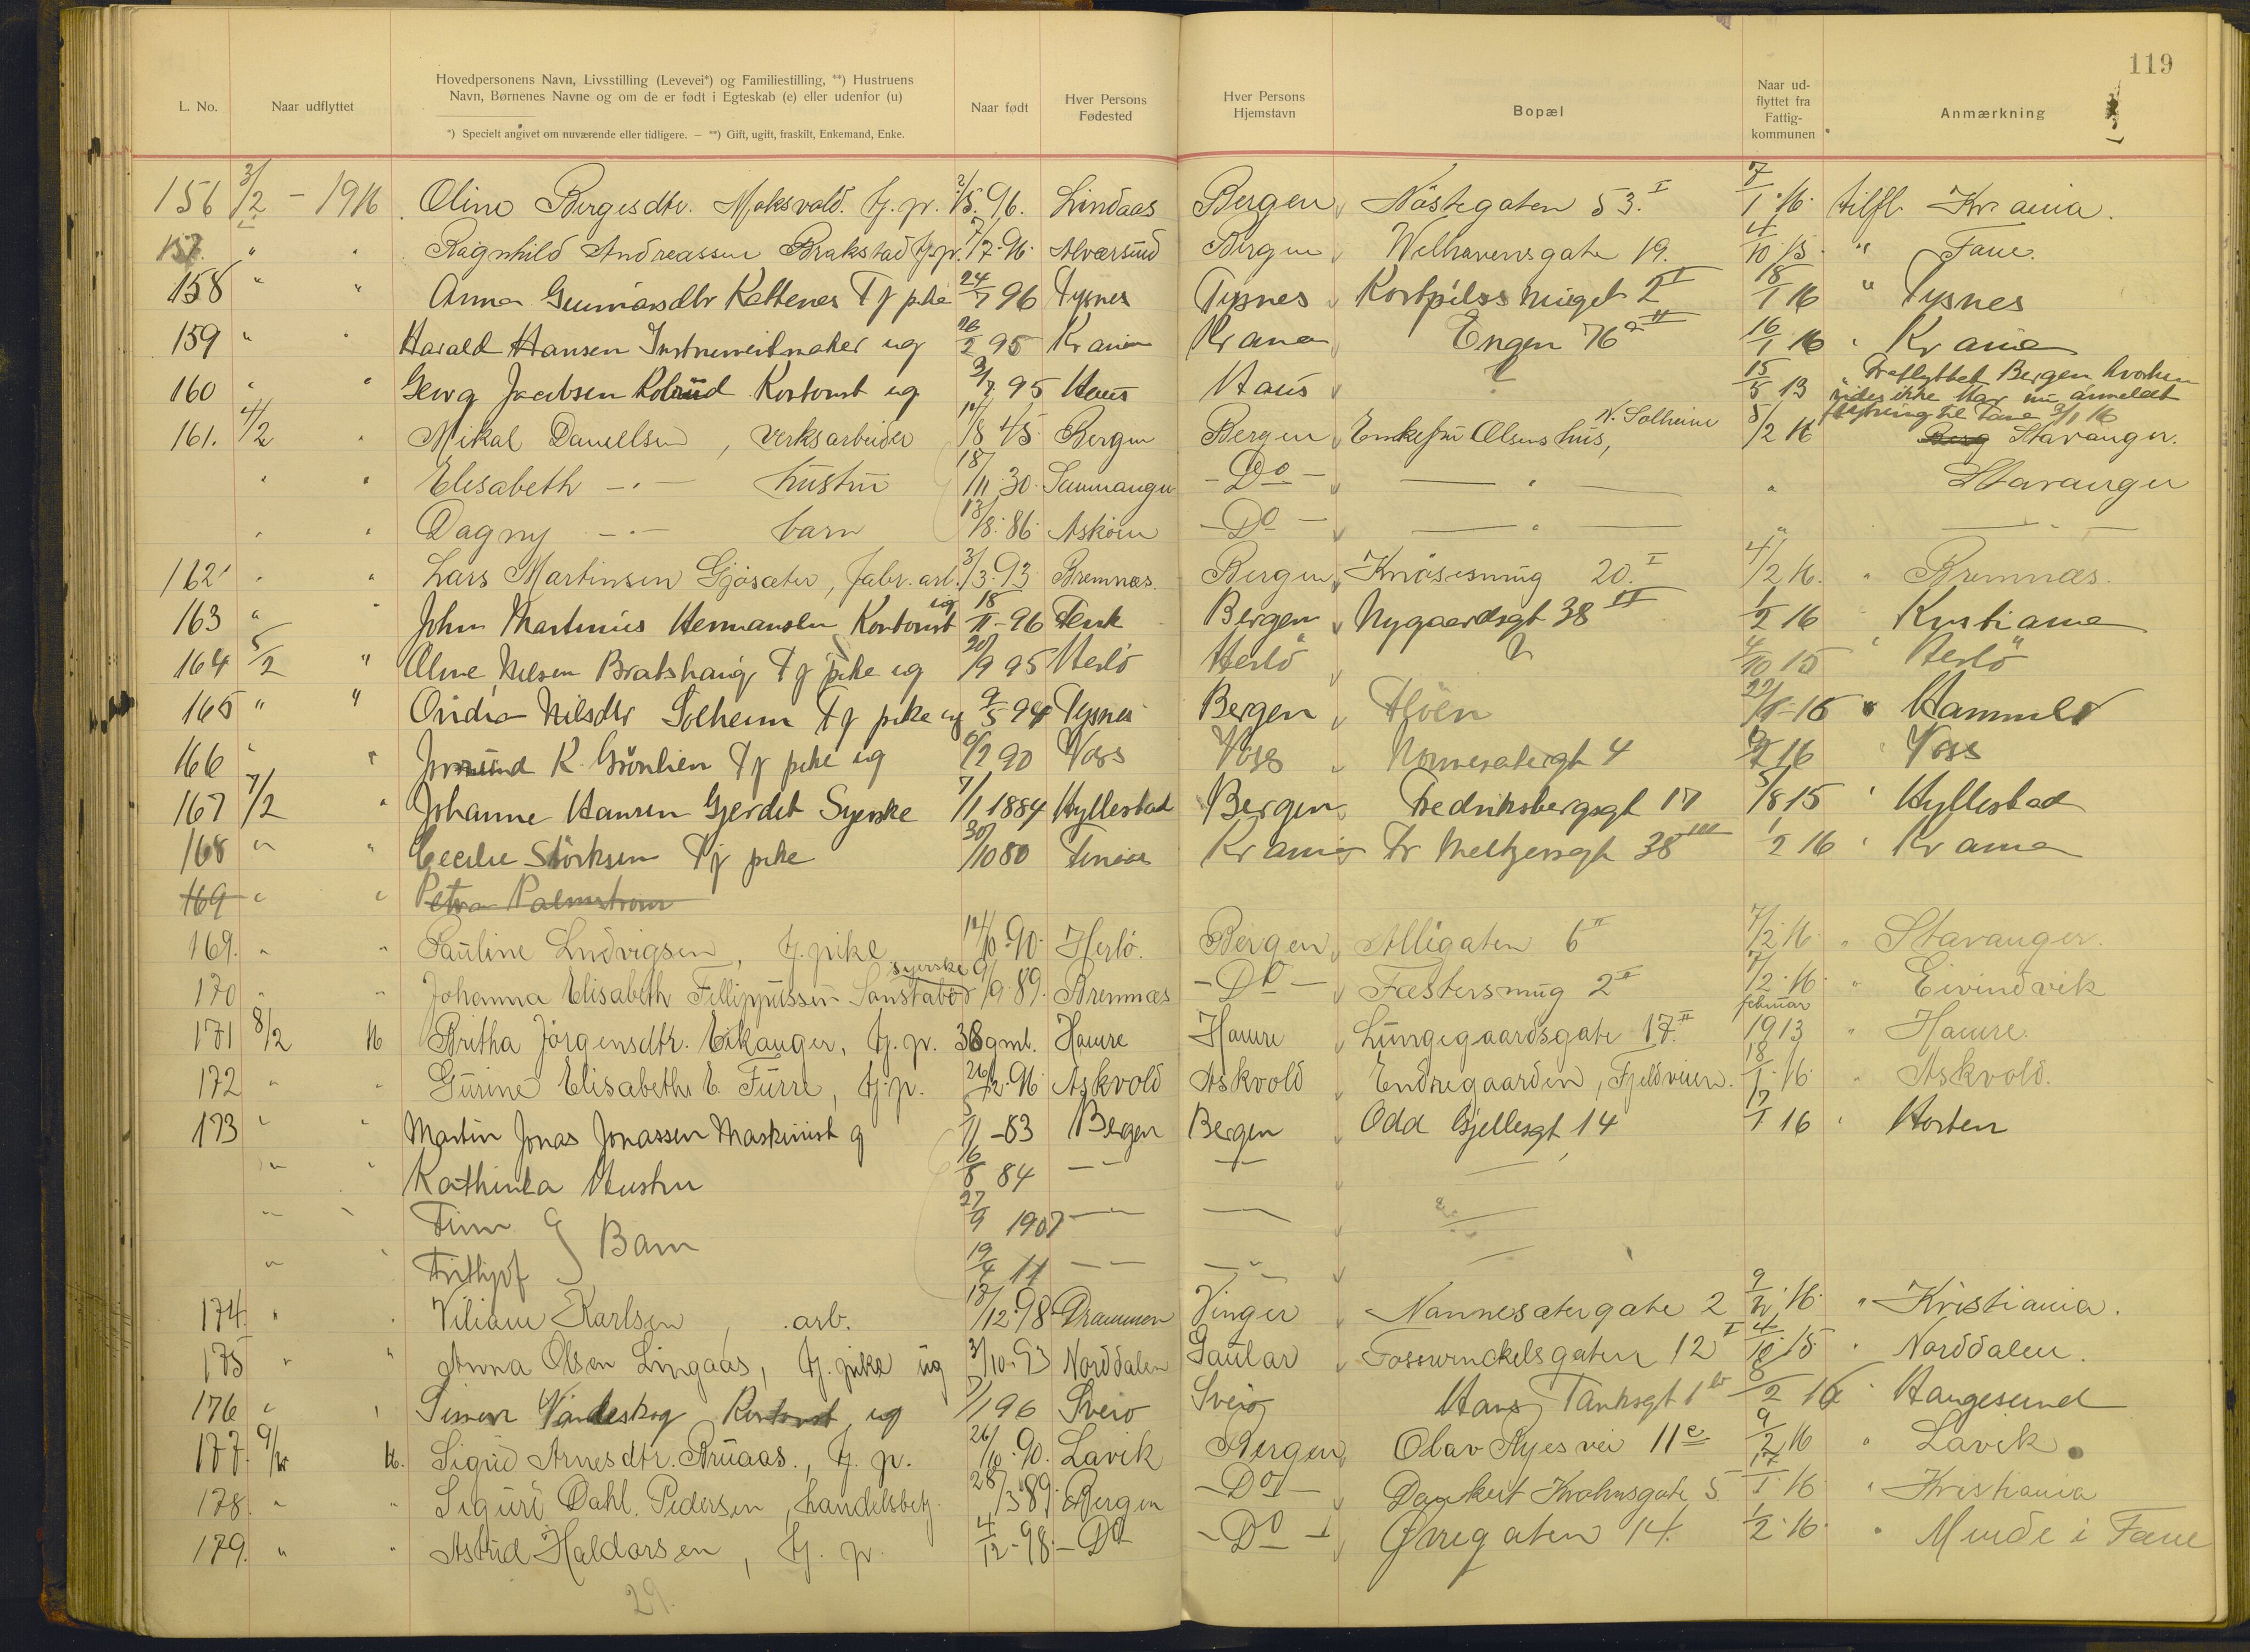 119
L. No.
Naar udflyttet
Hovedpersonens Navn, Livsstilling (Levevei*) og Familiestilling, **) Hustruens
Navn, Børnenes Navne og om de er født i Egteskab (e) eller udenfor (u)
*) Specielt angivet om nuværende eller tidligere. — **) Gift, ugift, fraskilt, Enkemand, Enke.
Naar født
Hver Persons
Fødested
Hver Persons
Hjemstavn
Bopæl
Naar ud-
flyttet fra
Fattig-
kommunen
Anmærkning
156 3/2 - 1916 Oline Bergesdtr. Moksvold. tj. p. 2/5. 96. Lindaas Bergen Nöstegaten 53. I 7/1. 16. tilfl. Kr.ania.
157. " " Ragnhild Andreassen Brakstad tj. p. 7/7. 96 Alværsund Bergen Welhavensgate 19. 4/10 15. " Fane.
158 " " Anna Gunnarsdtr Kattenes Tj pike 24/7 96 Tysnes Tysnes 2 II 18/1 16 " Tysnes
159 " " Harald Hansen Instrumentmaker ug 26/2 95 Kr ania Kr ania Engen 76 a II 16/1 16 " Kr ania
160 " " Georg Jacobsen Kolrud Kontorist ug 2/7 95 Haus Haus ? 15/5 13 " Fraflyttet Bergen hvorhen
vides ikke Har nu anmeldt
flytning til Fane 3/1 16
161. 4/2 " Mikal Daniellsen, verksarbeider 14/8 45 Bergen Bergen Enkefru Olsens hus, N. Solheim 5/2 16 Berg Stavanger.
" " Elisabeth - " - hustru 18/11. 30. - Do - " " Stavanger
" " Dagny - " - barn 13/8. 86. Asköen - Do - " " "
162 " " Lars Martinsen Gjösæter, fabr. arb. 3/3. 93 Bremnæs. Bergen Knösesmug 20. I 4/2 16. " Bremnæs.
163 " " John Martinius Hermansen Kontorist ug 18/11 - 96 Bergen Nygaardsgt 38 II 1/2 16 " Kristiania
164 5/2 " Oline Nilsen Bratshaug Tj pike ug 20/9 95 Herlö Herlö ? 4/10 15 " Herlö
165 " " Ovidia Nilsdtr Solheim Tj pike ug 9/5 94 Tysnes Bergen Flöen 29/1 - 16 " Hammer
166 " " K. Grönlien Tj pike ug 6/2 90 Voss Voss Nonnesætergt 4 16 " Voss
167 7/2 " Johanne Hansen Gjerdet Syerske 7/1 1884 Hyllestad Bergen Fredriksbergsgt 17 5/8 15 " Hyllestad
168 " " Cecilie Störksen Tj pike 30/10 80 Kr ania Fr Meltzersgt 38 III 1/2 16 " Kr ania
169 " " Petra Palmstrøm
169. " " Pauline Ludvigsen, tj. pike 14/10. 90. Herlö. Bergen Allégaten 6 II 7/2. 16. " Stavanger.
170 " " Johanna Elisabeth Fillippussen Sanstabød syerske 9/9. 89. Bremnæs - Do - Fæstersmug 2 I 7/2. 16. " Eivindvik
171 8/2 16 Britha Jörgensdtr. Eikanger, tj. p. 38 gml. Hamre Hamre Lungegaardsgate 17. II februar 1913 " Hamre.
172 " " Gurine Elisabethe E. Furre, tj. p. 26/12. 96. Askvold Askvold Endregaarden, Fjeldveien. 18/1. 16. " Askvold.
173 " " Martin Jonas Jonassen Maskinist g 5/11 - 83 Bergen Bergen Odd Gjellesgt 14 17/1 16 " Horten
" " Kathinka Hustru 16/8 84 - " - - " -
" " Finn } Barn 27/9 1907 - " -
" " Frithjof 19/4 11 - " - - " -
174. " " Viliam Karlsen, arb. 18/12. 98. Drammen Vinger Nonnesætergate 2 9/2. 16. " Kristiania.
175 " " Anna Olsen Lingaas, tj. pike ug 3/10. 93 Norddalen Gaular Fosswinckelsgaten 12 I 4/10. 15. " Norddalen.
176 " " Simon Vandeskog Kontorist ug 7/1 96 Sveio Sveio Hans Tanksgt 1 b 8/2 16 " Haugesund
177. 9/2 16. Sigrid Arnesdtr. Bruaas., tj. p. 26/10. 90. Lavik Bergen Olav Ryes vei 11 c 9/2 16 " Lavik
178. " " Sigurd Dahl. Pedersen, handelsbetj. 28/3 89. Bergen - Do - Dankert Krohnsgate 5. 17/1. 16 " Kristiania
179. " " Astrid Haldorsen, tj. p. 4/12 - 98. - Do - - Do - Øvregaten 14. 1/2. 16. " Minde i Fane
29.